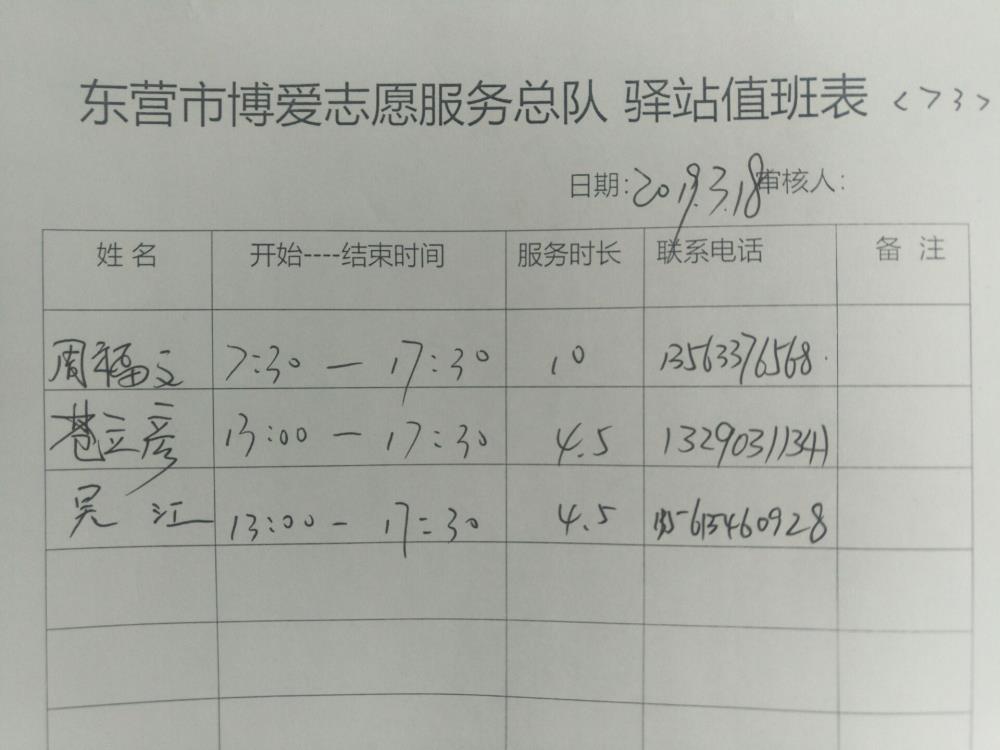 东营市博爱志愿服务总队 驿站值班表 <73>
日期:2019.3.18 审核人:
姓名 开始----结束时间 服务时长 联系电话 备注
周福文 7:30 — 17:30 10 13563376568
苍立彦 13:00 — 17:30 4.5 13290311341
吴江 13:00 - 17:30 4.5